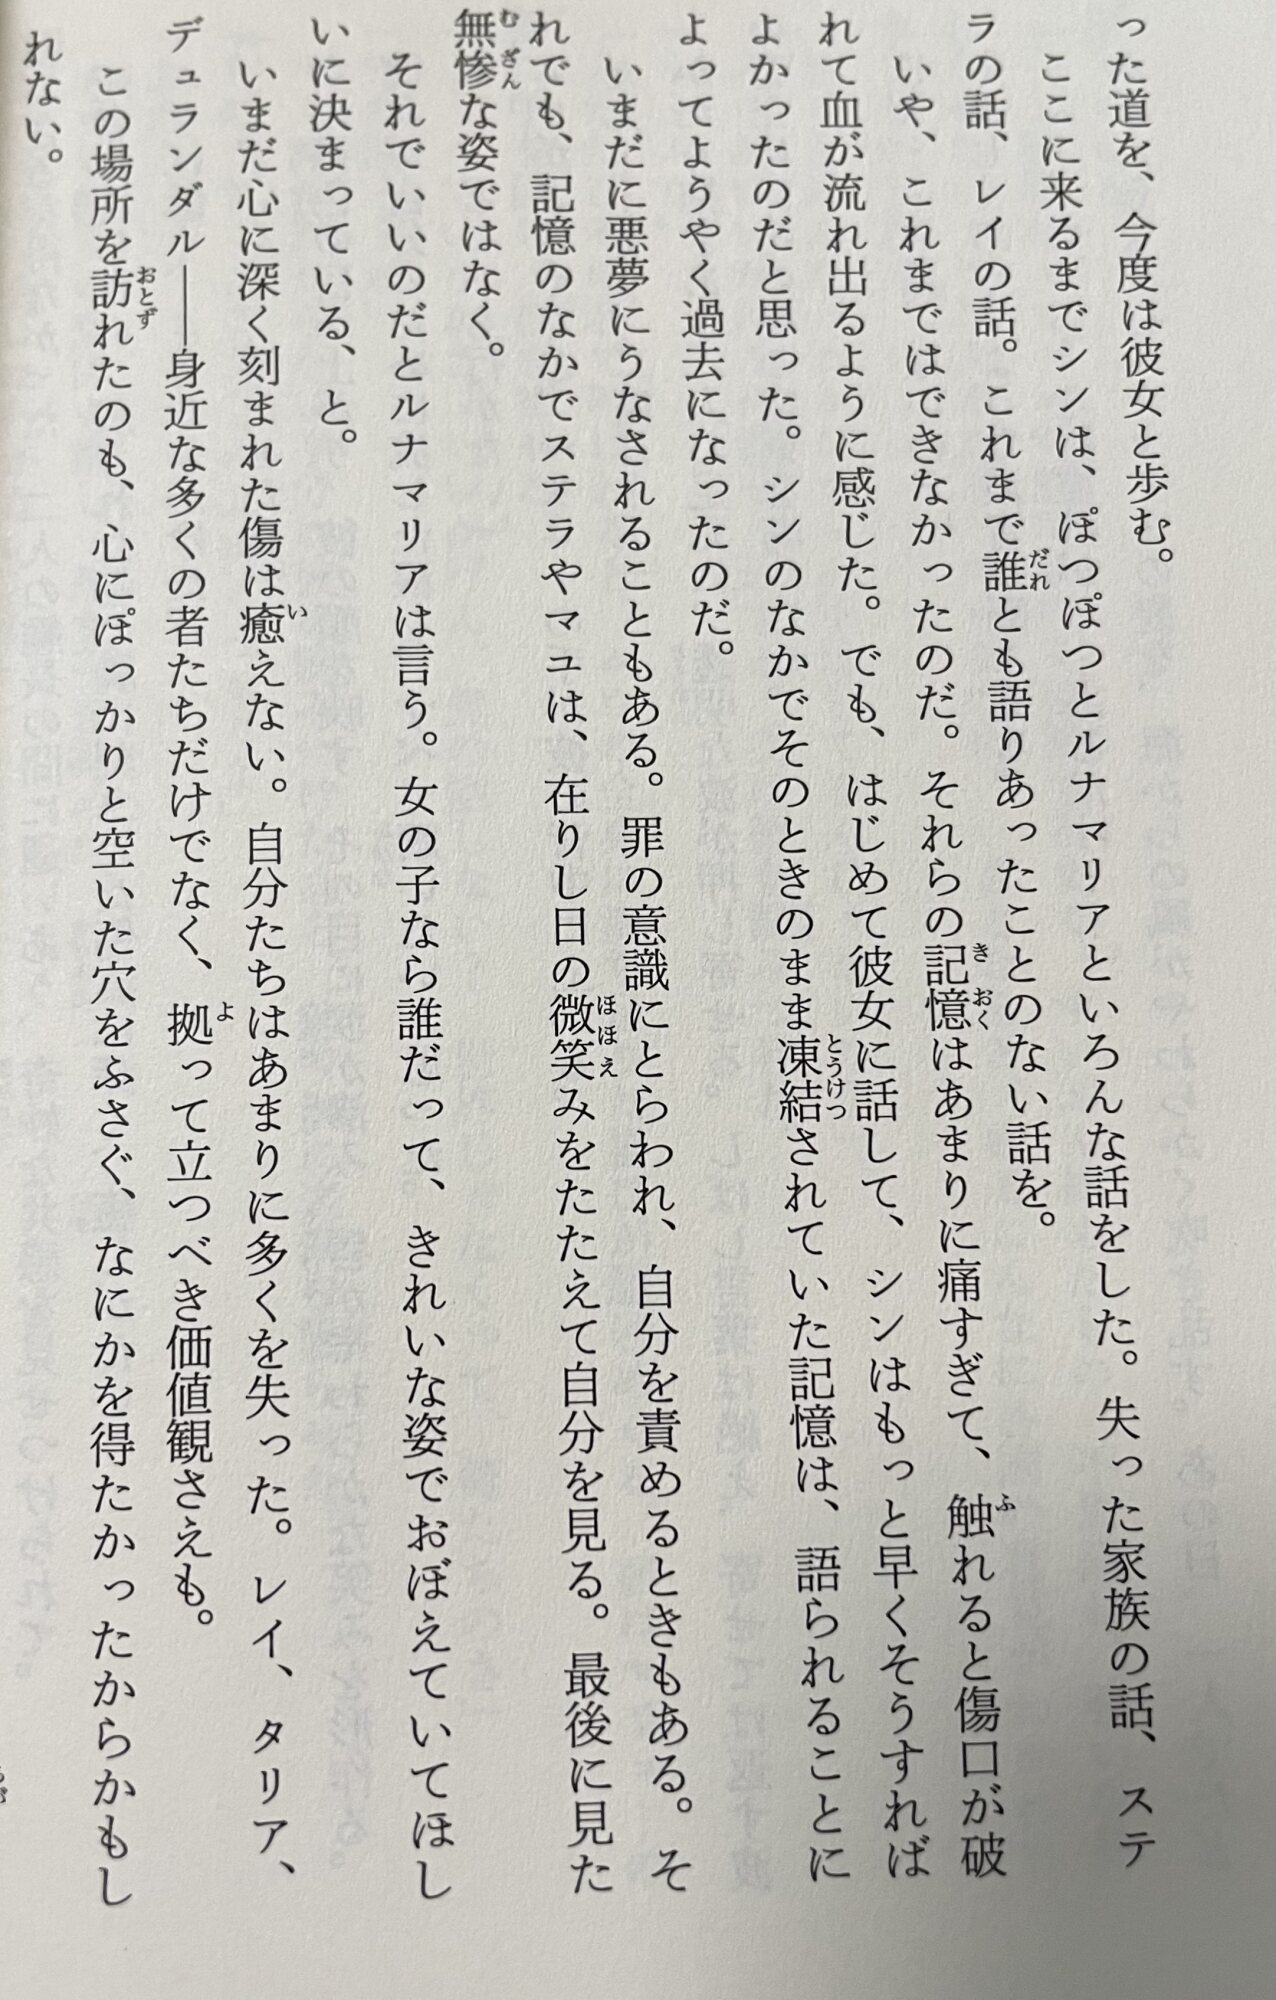 った道を、今度は彼女と歩む。
ここに来るまでシンは、ぽつぽつとルナマリアといろんな話をした。失った家族の話、ステ
ラの話、レイの話。これまで誰とも語りあったことのない話を。
いや、これまではできなかったのだ。それらの記憶はあまりに痛すぎて、触れると傷口が破
れて血が流れ出るように感じた。でも、はじめて彼女に話して、シンはもっと早くそうすれば
よかったのだと思った。シンのなかでそのときのまま凍結されていた記憶は、語られることに
よってようやく過去になったのだ。
いまだに悪夢にうなされることもある。罪の意識にとらわれ、自分を責めるときもある。そ
れでも、記憶のなかでステラやマユは、在りし日の微笑みをたたえて自分を見る。最後に見た
無惨な姿ではなく。
それでいいのだとルナマリアは言う。女の子なら誰だって、きれいな姿でおぼえていてほし
いに決まっている、と。
いまだ心に深く刻まれた傷は癒えない。自分たちはあまりに多くを失った。レイ、タリア、
デュランダル――身近な多くの者たちだけでなく、拠って立つべき価値観さえも。
この場所を訪れたのも、心にぽっかりと空いた穴をふさぐ、なにかを得たかったからかもし
れない。